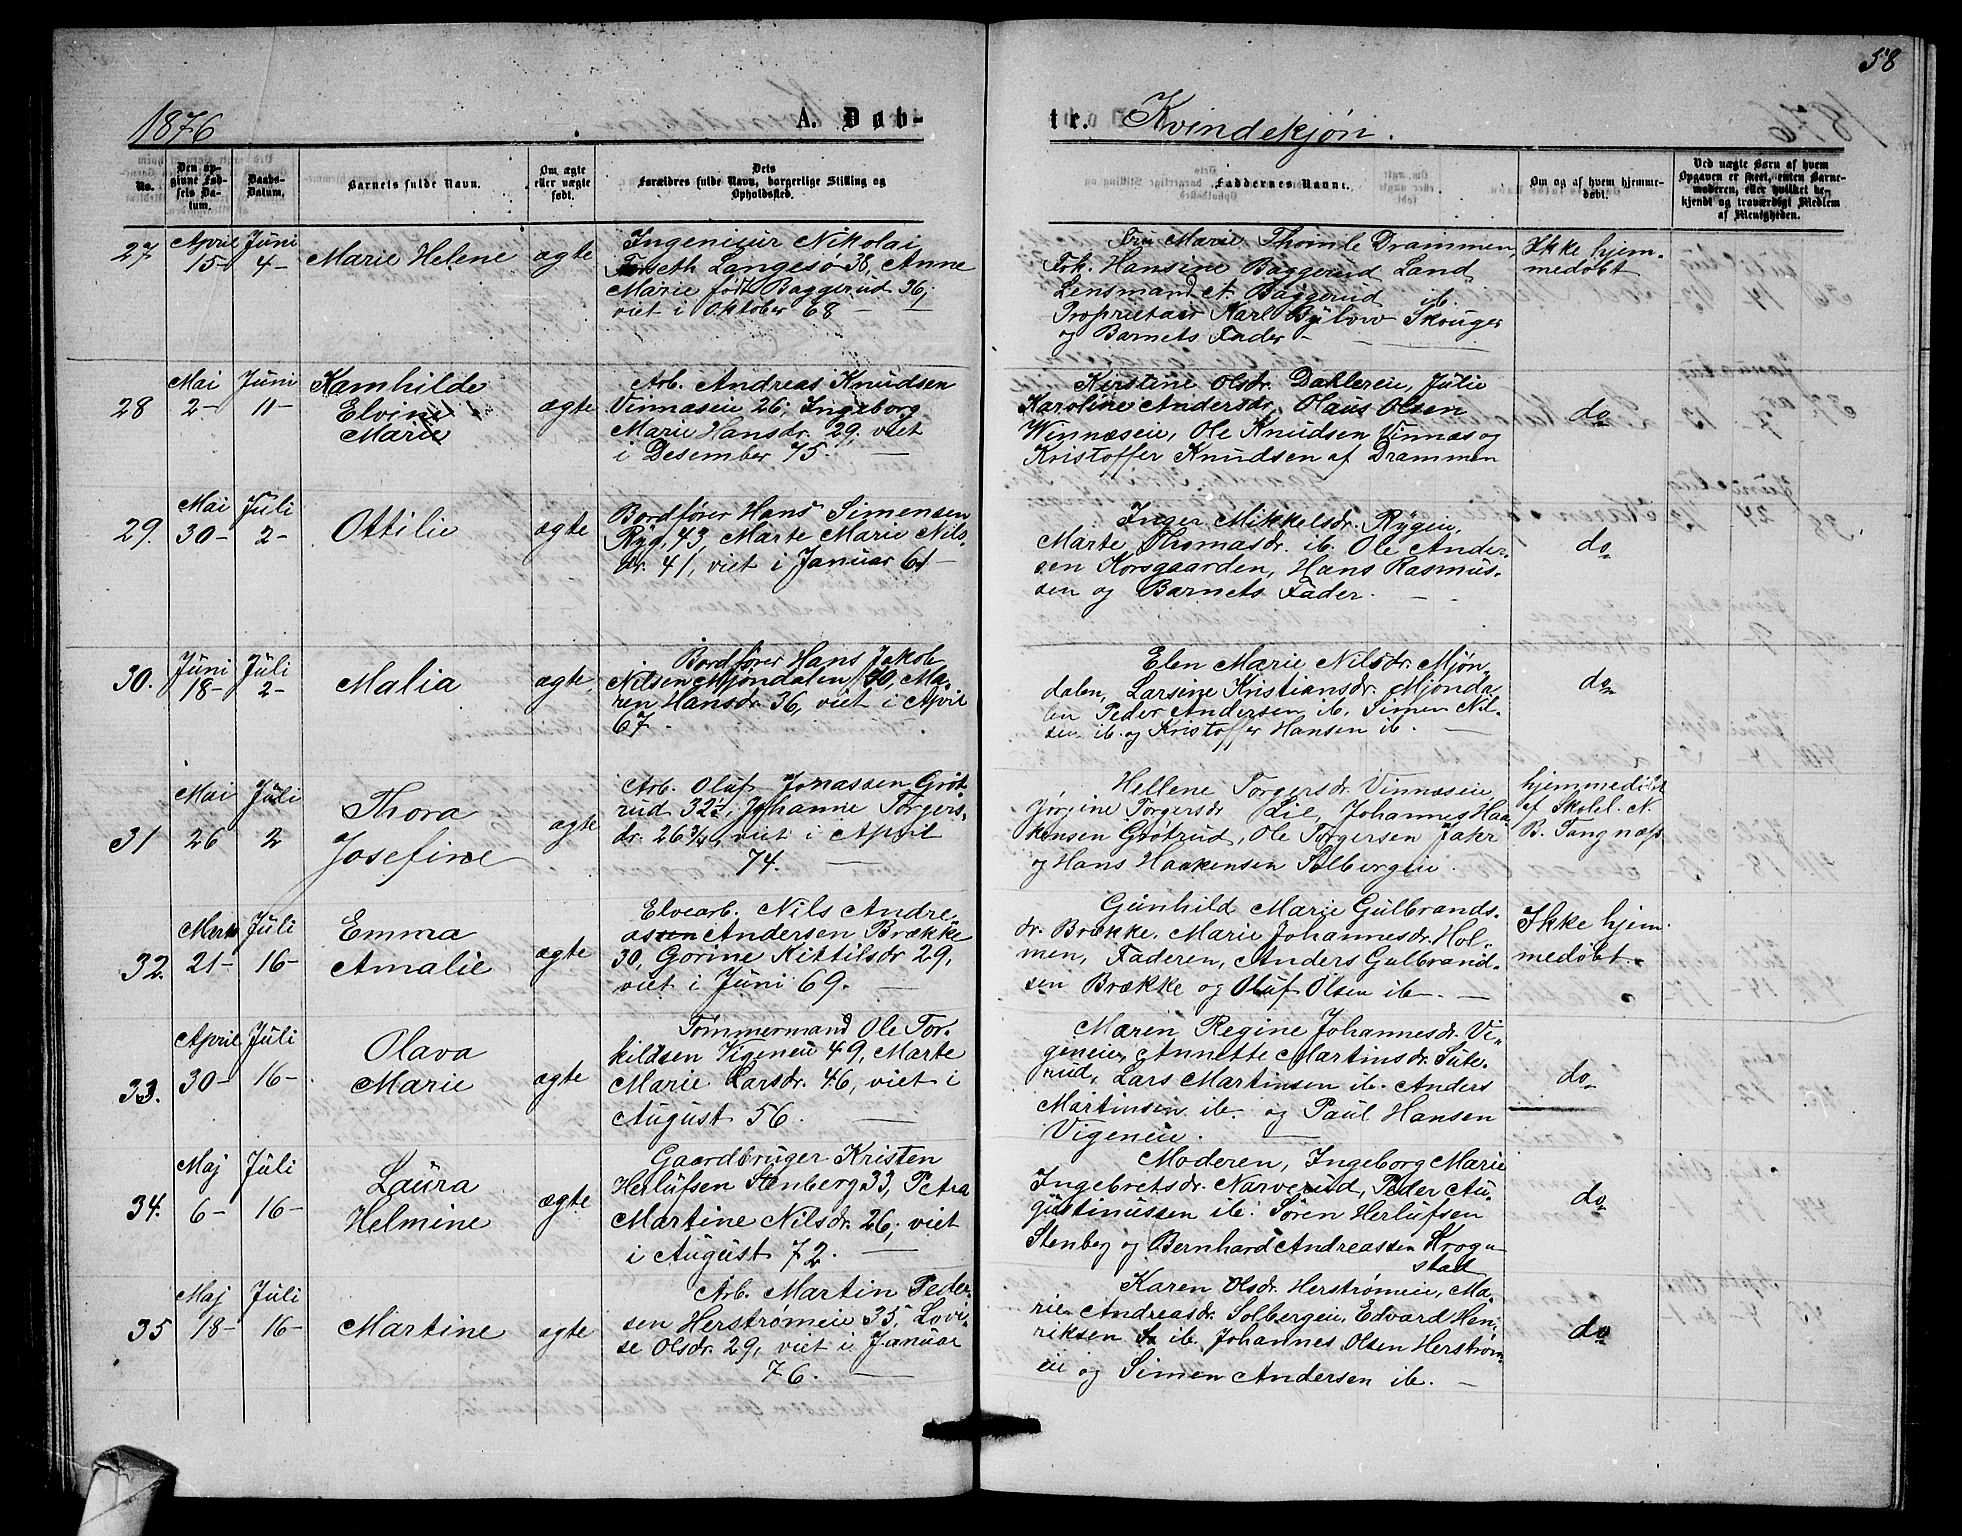 58
1876 A. Døb- te. Kvindekjøn.
No.
Den op-
givne Fød-
sels Da-
tum.
Daabs-
Datum.
Barnets fulde Navn.
Om ægte
eller uægte
født.
Dets
Forældres fulde Navn, borgerlige Stilling og
Opholdssted.
Faddernes Navne.
Om og af hvem hjemme-
døbt.
Ved uægte Børn af hvem
Opgaven er skeet, enten Barne-
moderen, eller hvilket be-
kjendt og troværdigt Medlem
af Menigheden.
27
April
15-
Juni
4-
Marie Helene
ægte
Ingenieur Nikolai
Langesø 38, Anne
Marie født Baggerud 36,
viet i Oktober 68 -
Fru Marie Thomle Drammen,
Frk. Hansine Baggerud Land
Lensmand A. Baggerud ib.
Proprietair Karl Bylow Skouger
og Barnets Fader -
Ikke hjem-
medøbt
28
Mai
2-
Juni
11-
Ramhilde
Elvine
Marie
ægte
Arb. Andreas Knudsen
Vinnæseie 26, Ingeborg
Marie Hansdr. 29. viet
i Desember 75. -
Kirstine Olsdr. Dahlereie, Julie
Karoline Andersdr. Olaus Olsen
Winnæseie, Ole Knudsen Vinnæs og
Kristoffer Knudsen af Drammen
do
29.
Mai
30-
Juli
2-
Ottilie
ægte
Bordfører Hans Simensen
Ryg, 43, Marte Marie Nils-
dr. 41, viet i Januar 61 -
Inger Mikkelsdr. Rygeie,
Marte Thomasdr. ib. Ole Ander-
sen Korsgaarden, Hans Rasmus-
sen og Barnets Fader. -
do
30.
Juni
18-
Juli
2-
Malia
ægte
Bordfører Hans Jakob
Nilsen Mjøndalen 30, Ma-
ren Hansdr. 36, viet i April
67.
Elen Marie Nilsdr. Mjøn-
dalen, Larsine Kristiansdr. Mjønda-
len Peder Andersen ib. Simen Nil-
sen ib. og Kristoffer Hansen ib. -
do
31
Mai
26
Juli
2
Thora
Josefine
ægte
Arb. Oluf Jonassen Grøt-
rud 32½, Johanne Torgers-
dr. 26¾, viet i April
74. -
Hellene Torgersdr. Vinnæseie
Jørgine Torgersdr Lie, Johannes Haa-
kensen Grøtrud, Ole Torgersen Jahr
og Hans Haakensen Solbergeie.
hjemmedøbt
af Skolel. N.
B. Tangnæs
32.
Marts
21-
Juli
16-
Emma
Amalie
ægte
Elvearb. Nils Andre
asen Andersen Brække
30, Gorine Kittilsdr 29,
viet i Juni 69. -
Gunhild Marie Gulbrands-
dr. Brække, Marie Johannesdr. Hol-
men, Faderen, Anders Gulbrand-
sen Brække og Oluf Olsen ib. -
Ikke hjem-
medøbt
33.
April
30-
Juli
16-
Olava
Marie
ægte
Tømmermand Ole Tor-
kildsen Vigeneie 49, Marte
Marie Larsdr. 46, viet i
August 56. -
Maren Regine Johannesdr. Vi-
geneie, Annette Martinsdr. Sute-
rud, Lars Martinsen ib. Anders
Martinsen ib. og Paul Hansen
Vigeneie. -
do
34.
Maj
6-
Juli
16-
Laura
Helmine
ægte
Gaardbruger Kristen
Herlufsen Stenberg 33, Petra
Martine Nilsdr. 26, viet
i August 72. -
Moderen, Ingeborg Marie
Ingebretsdr. Narverud, Peder Au-
gustinussen ib. Søren Herlufsen
Stenberg og Bernhard Andreassen Krog-
stad
do
35
Maj
18-
Juli
16-
Martine
ægte
Arb. Martin Peder-
sen Herstrømeie 35, Lovi-
se Olsdr. 29, viet i Januar
76. -
Karen Olsdr. Herstrømeie, Ma-
rie Andreasdr. Solbergeie, Edvard Hen-
riksen ib. Johannes Olsen Herstrøm-
eie og Simen Andersen ib. -
do